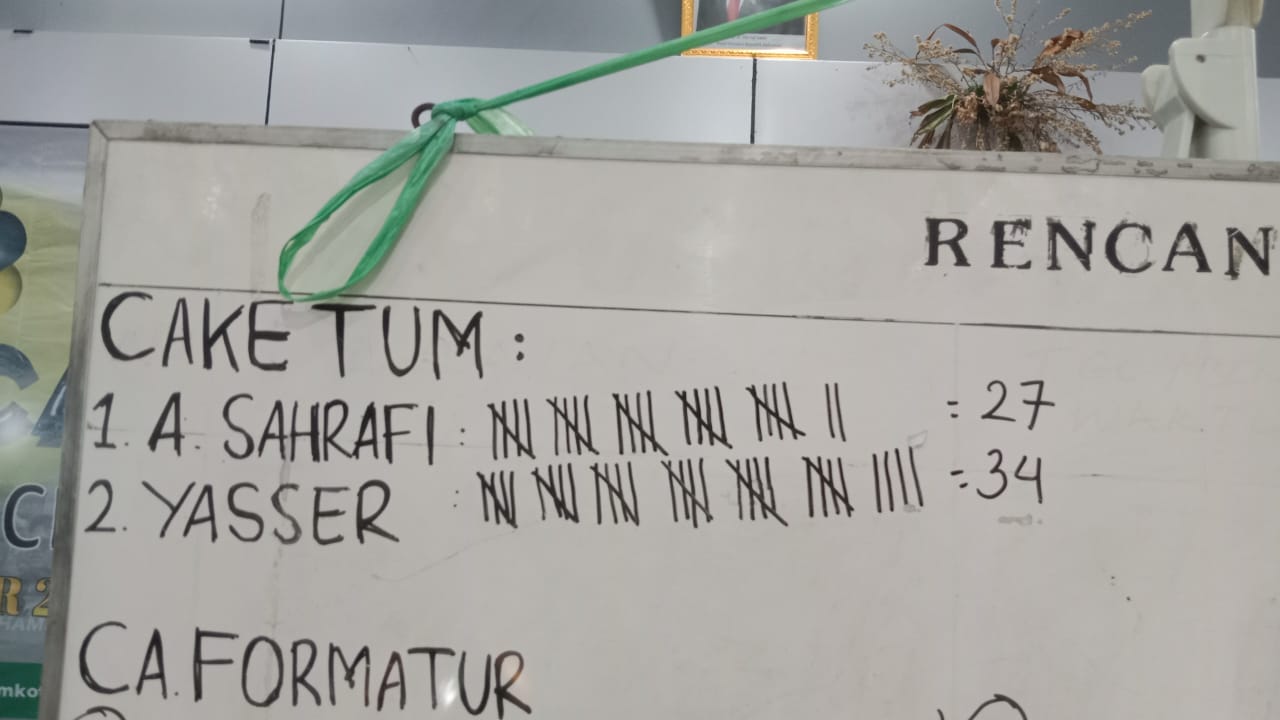 RENCAN
CAKETUM :
1. A. SAHRAFI : 𝍸 𝍸 𝍸 𝍸 𝍸 || = 27
2. YASSER : 𝍸 𝍸 𝍸 𝍸 𝍸 𝍸 |||| = 34
CA. FORMATUR
R 2
HAM
mko